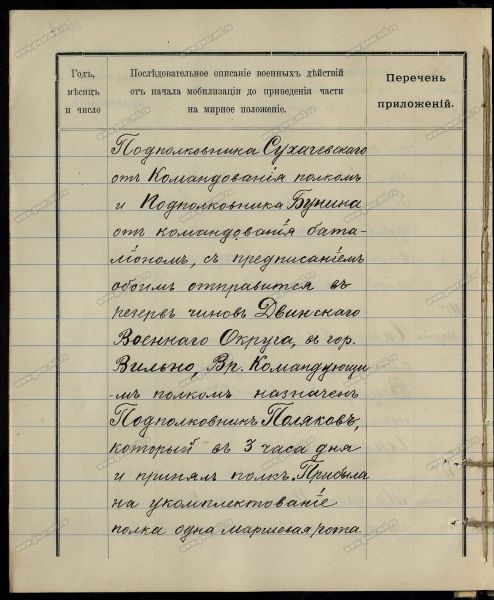 Годъ,
мѣсяцъ
и число
Послѣдовательное описаніе военныхъ дѣйствій
отъ начала мобилизаціи до приведенія части
на мирное положеніе.
Перечень
приложеній.
Подполковника Сухачевскаго
отъ Командованія полкомъ
и Подполковника Бунина
отъ командованія бата-
ліономъ, съ предписаніемъ
обоимъ отправится въ
резервъ чиновъ Двинскаго
Военнаго Округа, въ гор.
Вильно, Вр. Командующи
-мъ полкомъ назначенъ
Подполковникъ Поляковъ,
который въ 3 часа дня
и принялъ полкъ. Прибыла
на укомплектованіе
полка одна маршевая рота
www.gwar.mil.ru